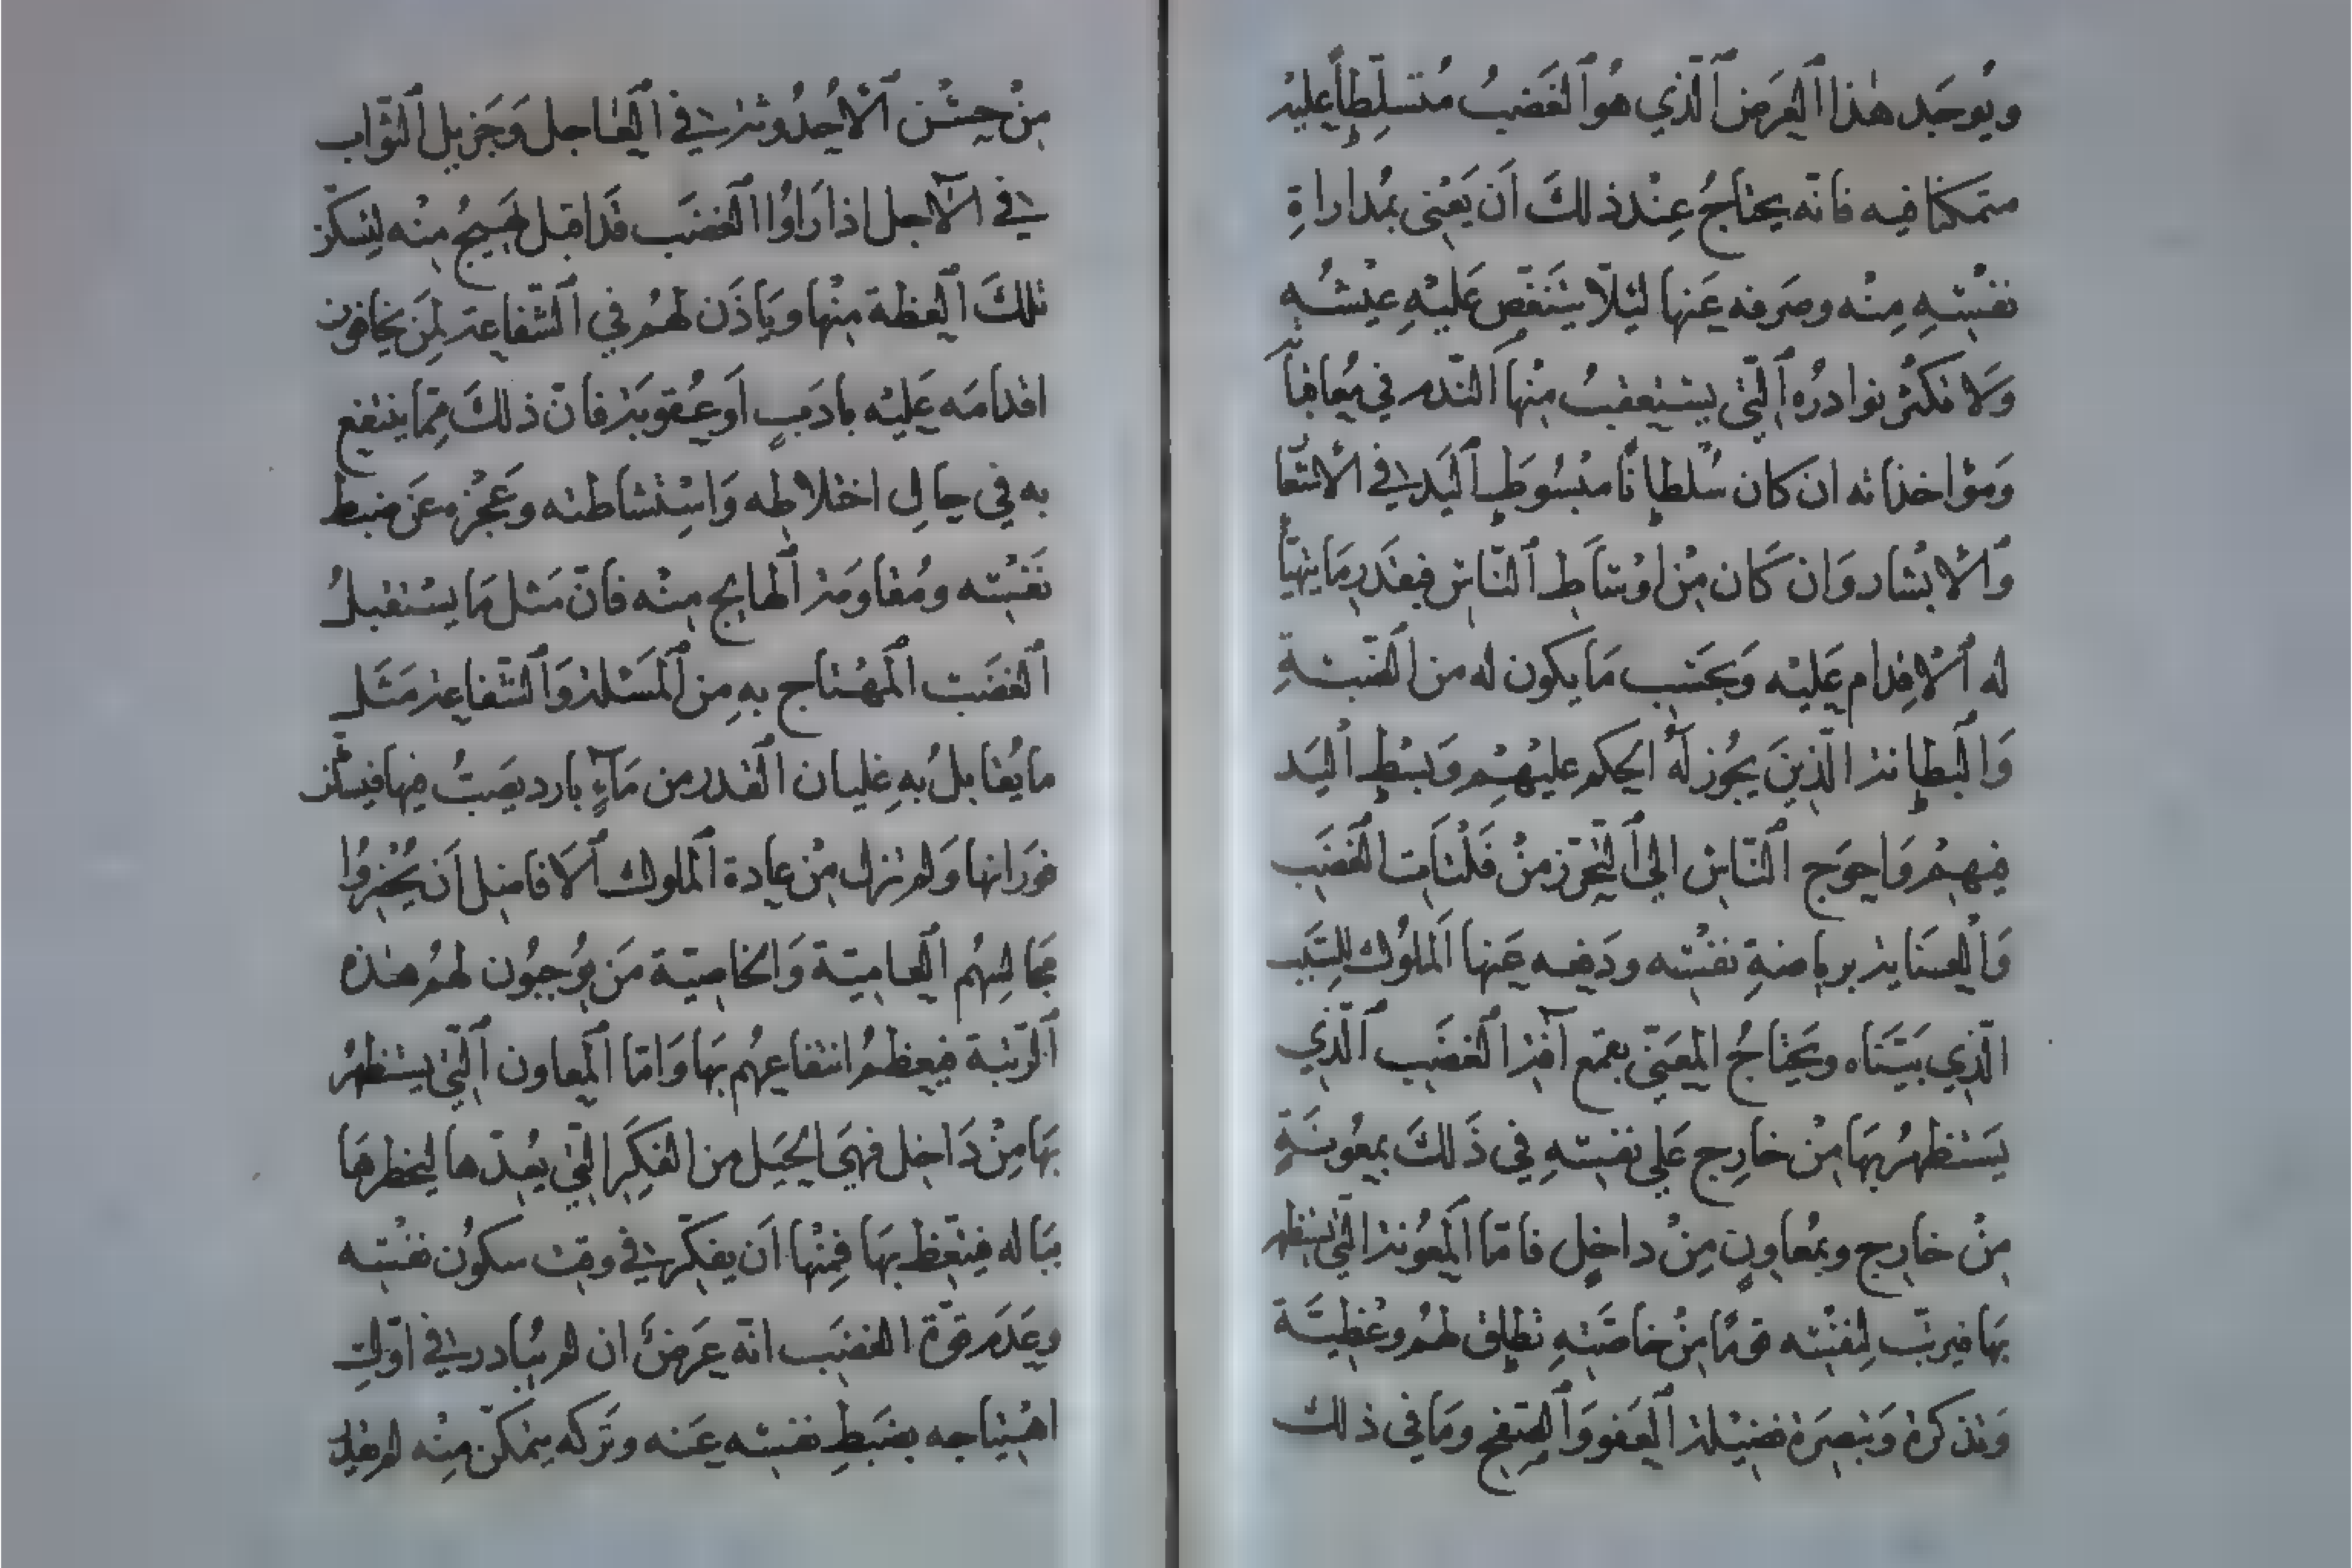 ويوجد هذا العرض الذي هو الغضب متسلطا عليه
متمكنا فيه فانه يحتاج عند ذلك ان يعنى بمداراة
نفسه منه وصرفه عنها ليلا يتنغص عليه عيشه
ولا تكثر نوادره التي يستعقب منها الندم في معاقباته
ومؤاخذاته ان كان سلطانا مبسوط اليد في الاشعار
والابشار وان كان من اوساط الناس فبقدر ما يتهيأ
له الاقدام عليه وبحسب ما يكون له من الضبنة
والبطانة الذين يجوز له الحكم عليهم وبسط اليد
فيهم واحوج الناس الى التحرز من فلتات الغضب
والعناية برياضة نفسه ودفعه عنها الملوك للسبب
الذي بيناه ويحتاج المعنى بقمع آفة الغضب الذي
يستظهر بها من خارج على نفسه في ذلك بمعونة
من خارج وبمعاون من داخل فاما المعونة التي يستظهر
بها فيرتب لنفسه قوما من خاصته تطلق لهم وعظية
وتذكرة وتبصرة فضيلة العفو والصفح وما في ذلك
من حسن الاحدوثة في العاجل وجزيل الثواب
في الآجل اذا راوا الغضب قد اقبل لهيج منه ليسكن
تلك العظة منها وياذن لهم في الشفاعة لمن يخافون
اقدامه عليه بادب او عقوبة فان ذلك مما ينتفع
به في حال اختلاطه واستشاطته وعجزه عن ضبط
نفسه ومقاومة الهايج منه فان مثل ما يستقبل
الغضب المهتاج به من المسئلة والشفاعة مثل
ما يقابل به غليان القدر من مآء بارد يصب فيها فيسكن
فورانها ولم نزل من عادة الملوك الافاضل ان يحضروا
مجالسهم العامية والخاصية من يوجبون لهم هذه
الرتبة فيعظم انتفاعهم بها واما المعاون التي يستظهر
بها من داخل فهي الحيل من الفكر التي يعدها ليخطرها
بباله فيتعظ بها فمنها ان يفكر في وقت سكون نفسه
وعدم قوة الغضب انه عرض ان لم يبادر في اول
اهتياجه بضبط نفسه عنه وتركه يتمكن منه لم